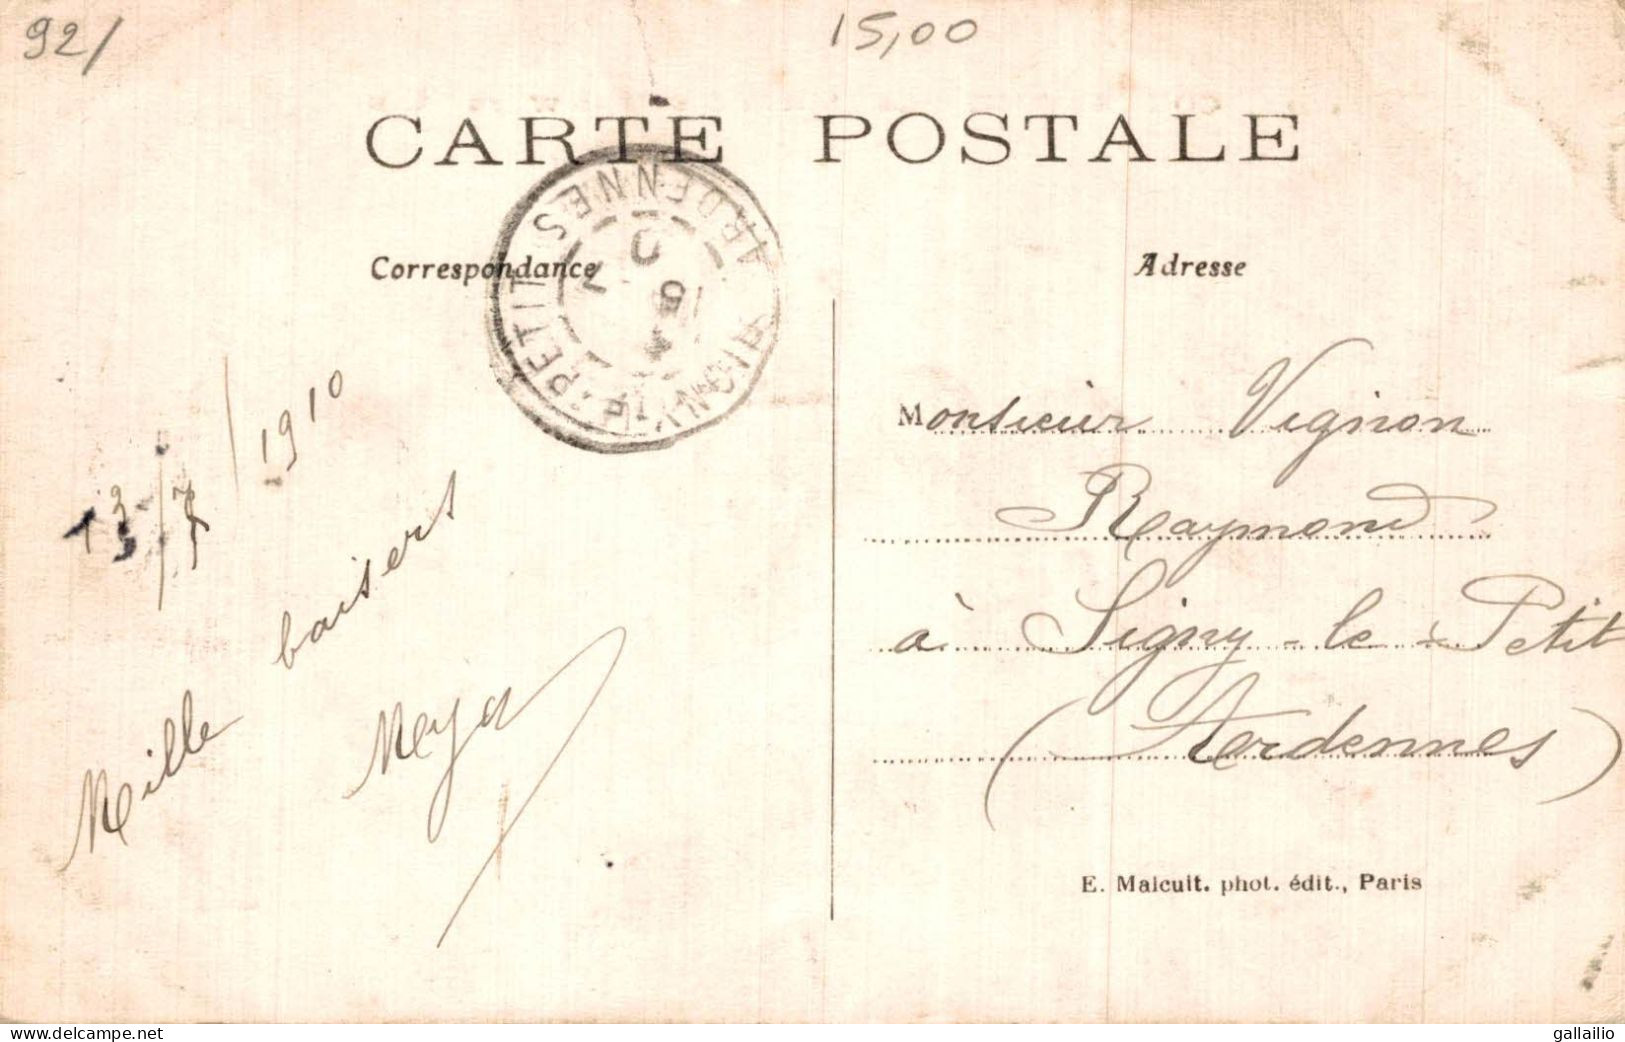 92/
15,00
CARTE POSTALE
Correspondance
Adresse
SIGNY-LE-PETIT
ARDENNES
1910
Mille baisers
Monsieur Vignon
Raymond
à Signy-le-Petit
(Ardennes)
E. Malcuit. phot. édit., Paris
www.delcampe.net
gallailio